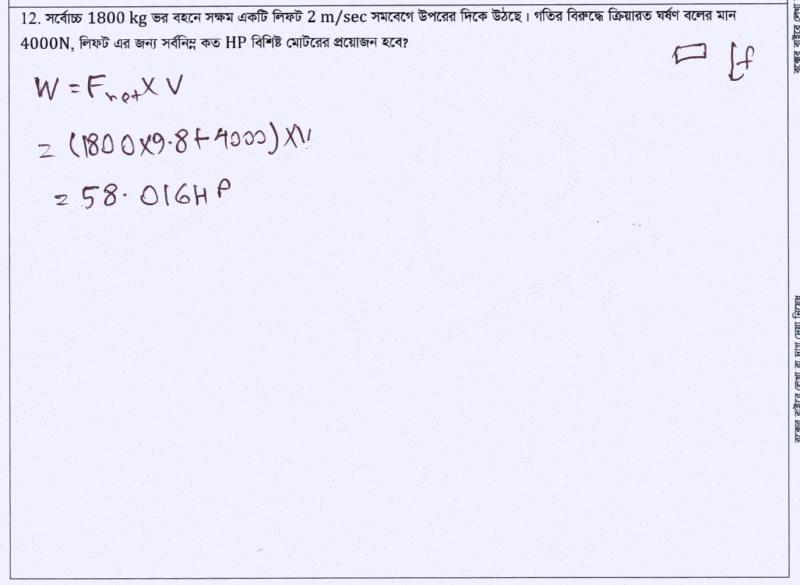 12. সর্বোচ্চ 1800 kg ভর বহনে সক্ষম একটি লিফট 2 m/sec সমবেগে উপরের দিকে উঠছে। গতির বিরুদ্ধে ক্রিয়ারত ঘর্ষণ বলের মান
4000N, লিফট এর জন্য সর্বনিম্ন কত HP বিশিষ্ট মোটরের প্রয়োজন হবে?
f
W = Fnet X V
= (1800X9.8+4000) X
= 58.016HP